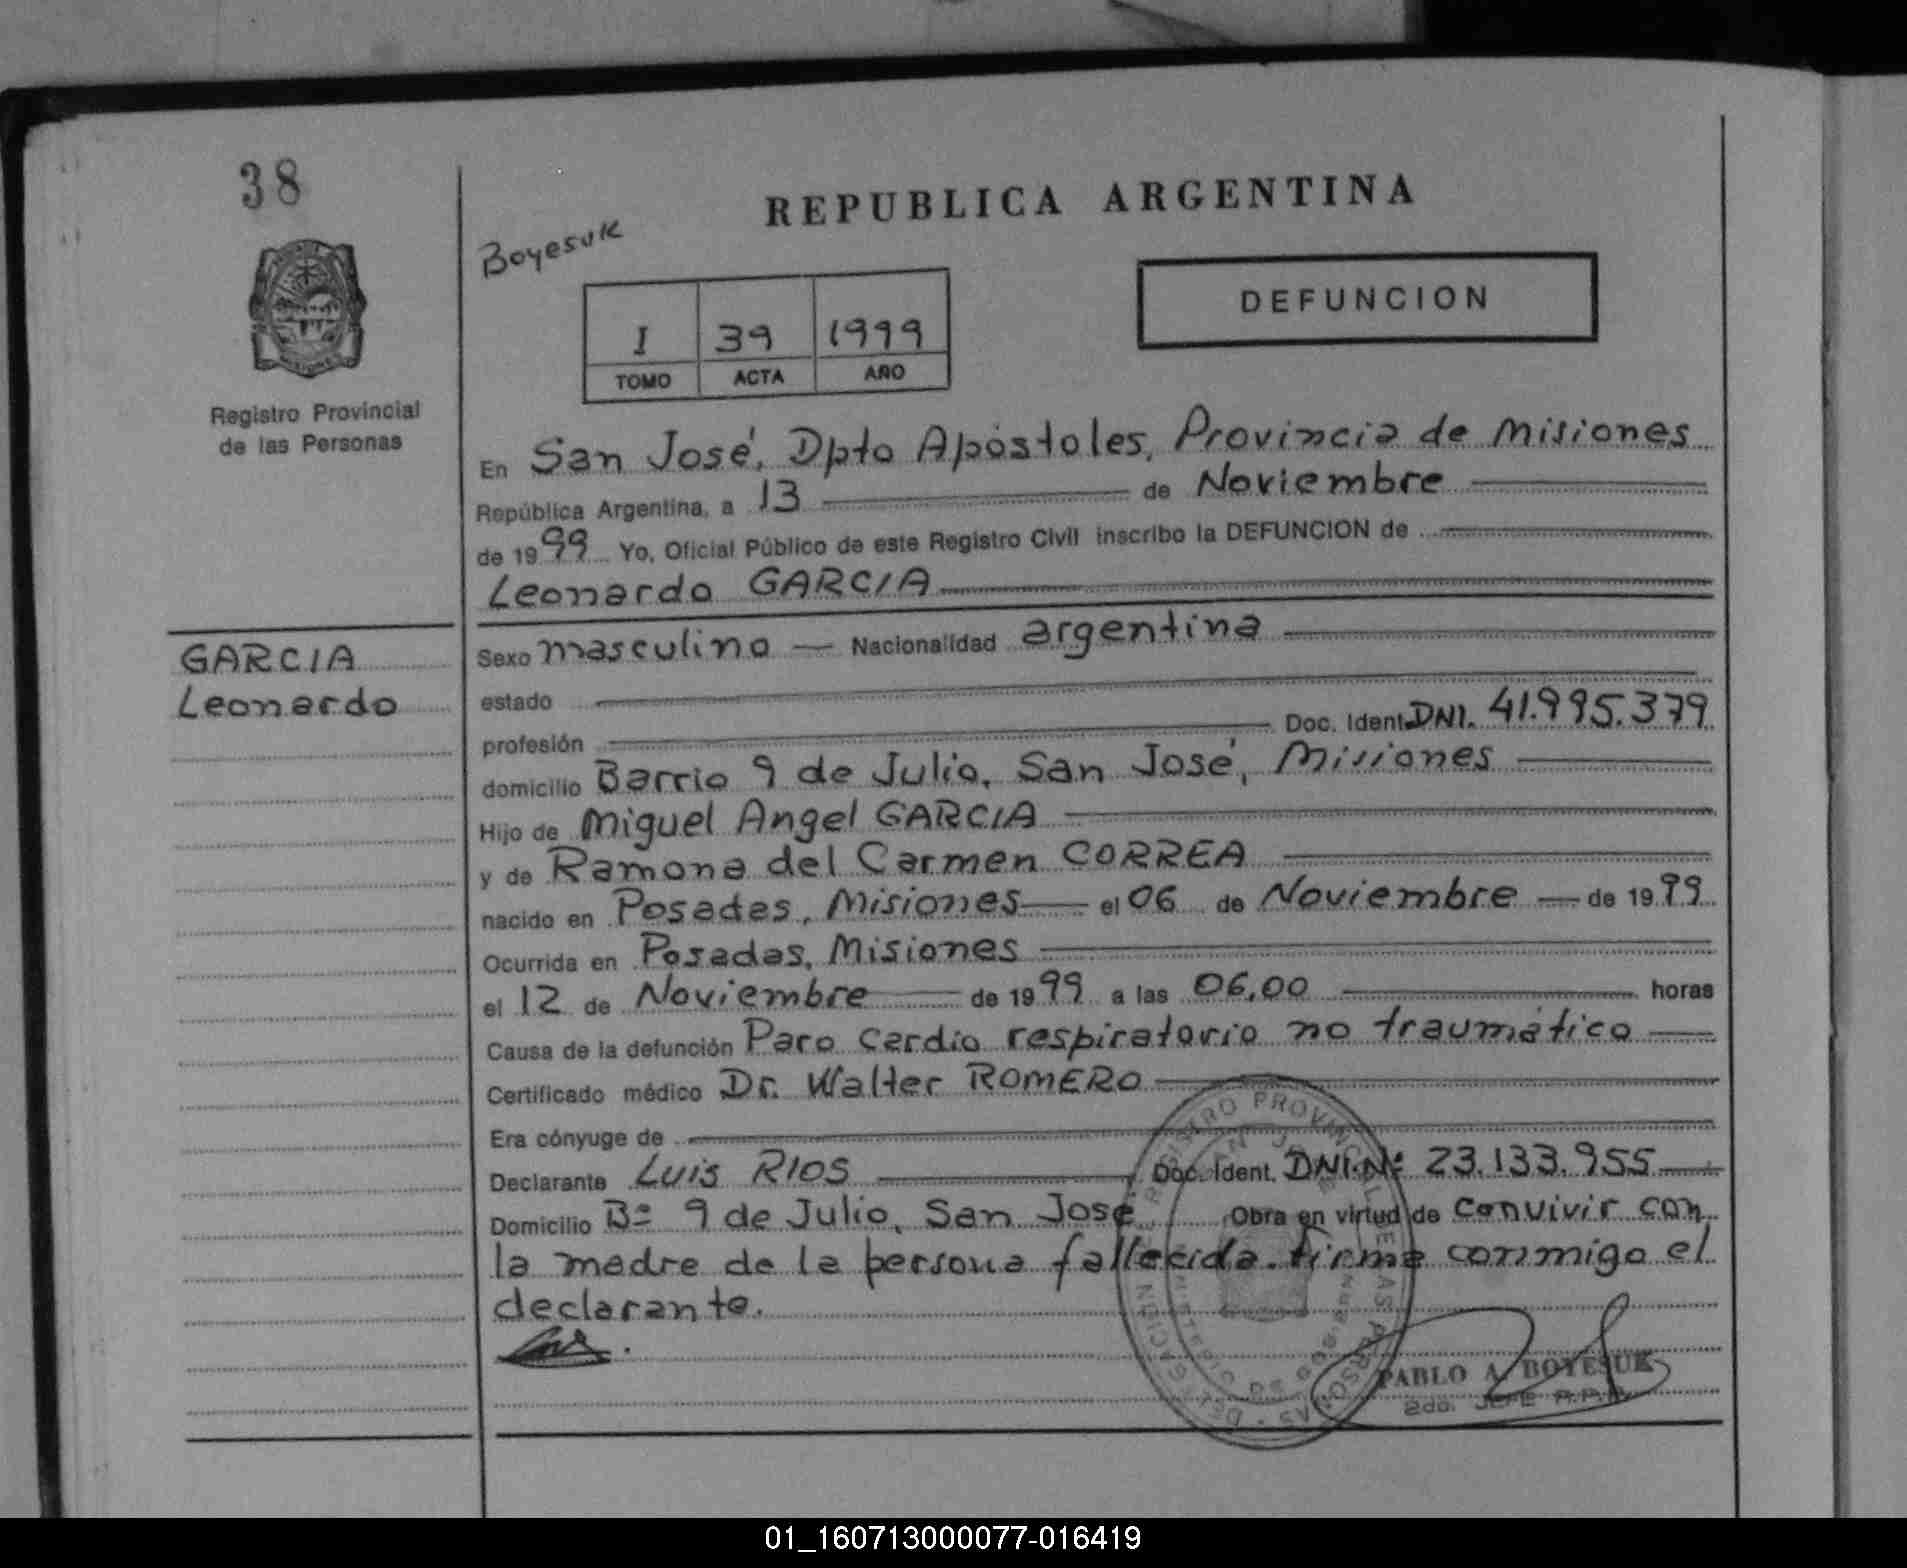 38
REPUBLICA ARGENTINA
Boyesuk
DEFUNCION
I 39 1999
TOMO ACTA AÑO
Registro Provincial
de las Personas
En San José, Dpto Apóstoles, Provincia de Misiones
República Argentina, a 13 de Noviembre
de 1999 Yo, Oficial Público de este Registro Civil inscribo la DEFUNCION de
Leonardo GARCIA
GARCIA
Leonardo
Sexo masculino — Nacionalidad argentina
estado
profesión Doc. Ident. DNI. 41.995.379
domicilio Barrio 9 de Julio, San José, Misiones
Hijo de Miguel Angel GARCIA
y de Ramona del Carmen CORREA
nacido en Posadas, Misiones — el 06 de Noviembre — de 1999
Ocurrida en Posadas, Misiones
el 12 de Noviembre de 1999 a las 06,00 horas
Causa de la defunción Paro cardio respiratorio no traumático
Certificado médico Dr. Walter ROMERO
Era cónyuge de
Declarante Luis RIOS Doc. Ident. DNI.Nº 23.133.955
Domicilio Bº 9 de Julio, San José Obra en virtud de convivir con
la madre de la persona fallecida. firma conmigo el
declarante.
PABLO A. BOYESUK
2do. JEFE R.P.P.
REGISTRO PROVINCIAL DE LAS PERSONAS
01_160713000077-016419